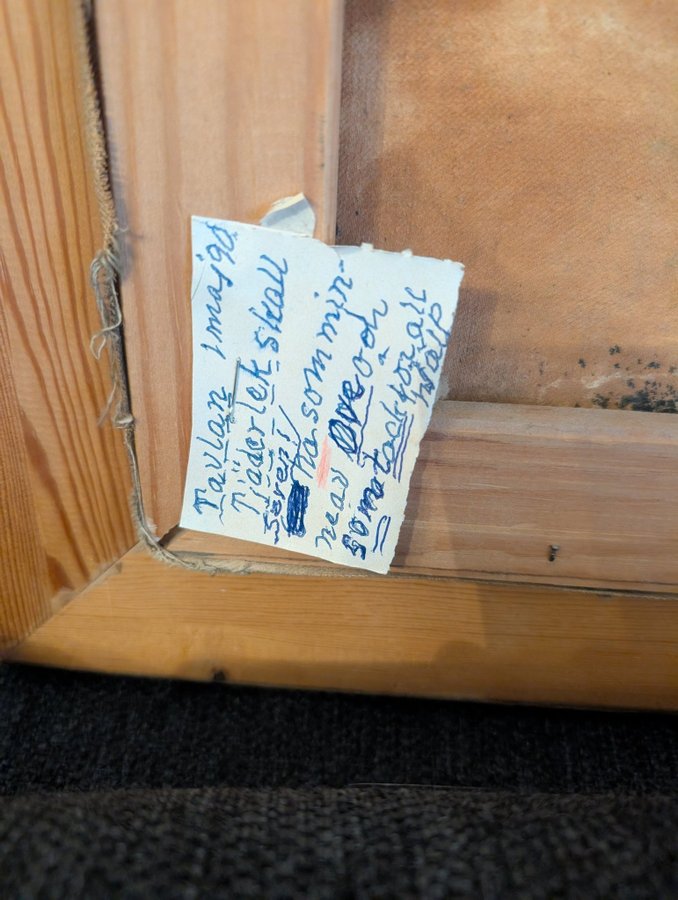 Tavlan 1 maj 90
Tjäderlek skall
Seved
ha som min-
nead Ove och
som tack för all
hjälp